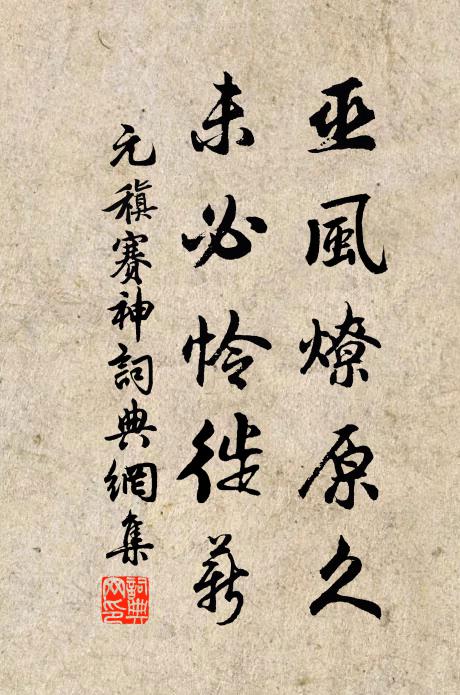 巫風燎原久
未必怜徙薪
元稹賽神詞典網集
詞典文印